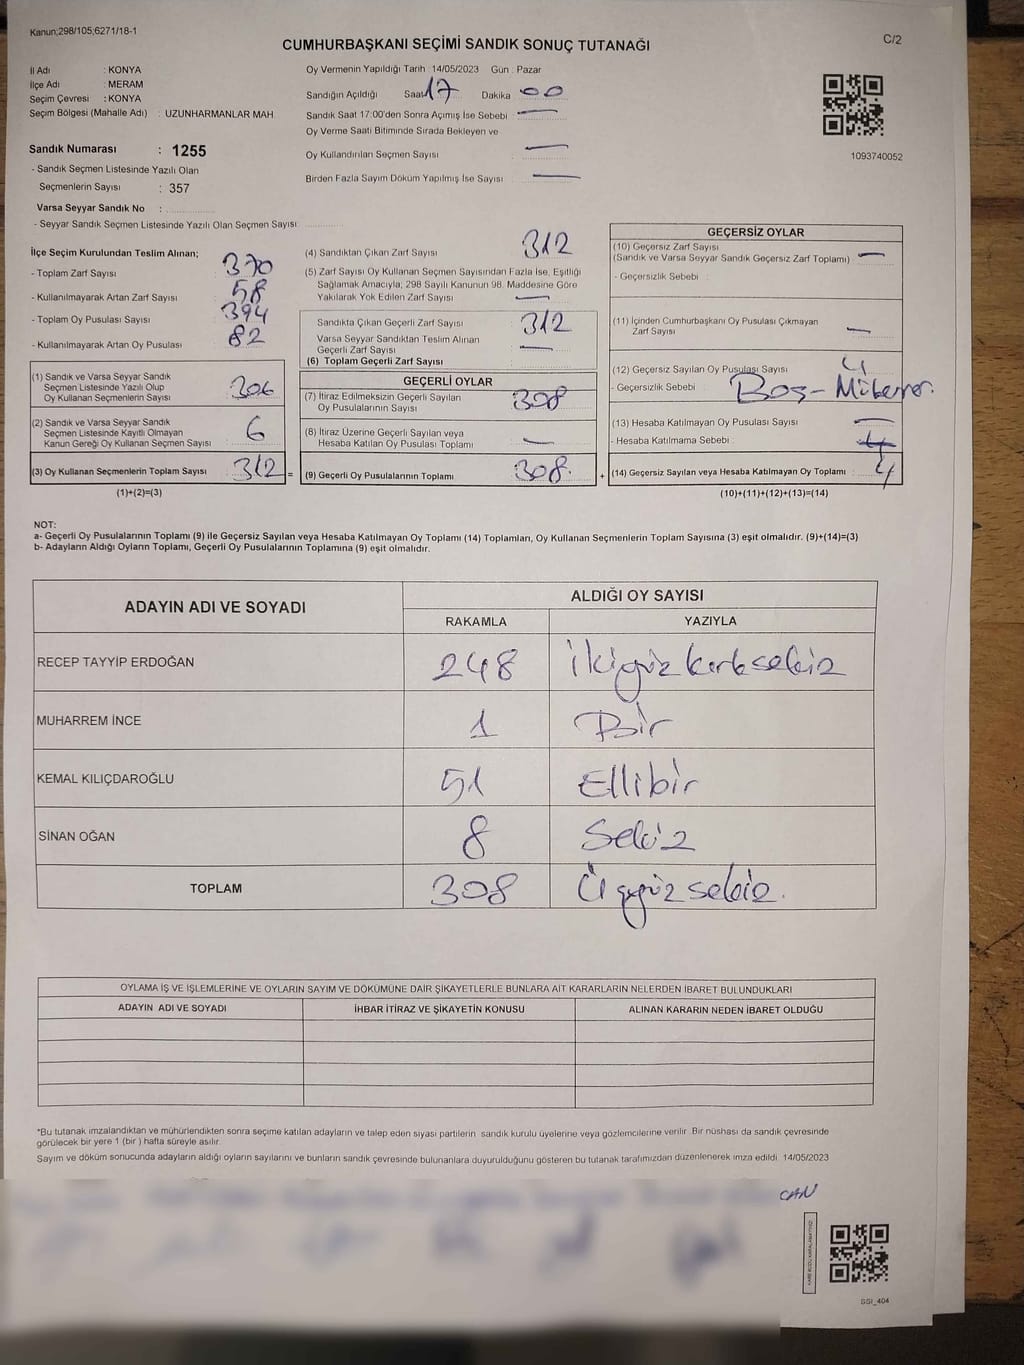 Kanun;298/105;6271/18-1
C/2
CUMHURBAŞKANI SEÇİMİ SANDIK SONUÇ TUTANAĞI
İl Adı : KONYA
İlçe Adı : MERAM
Seçim Çevresi : KONYA
Seçim Bölgesi (Mahalle Adı) : UZUNHARMANLAR MAH.
Sandık Numarası : 1255
- Sandık Seçmen Listesinde Yazılı Olan
Seçmenlerin Sayısı : 357
Varsa Seyyar Sandık No :
- Seyyar Sandık Seçmen Listesinde Yazılı Olan Seçmen Sayısı
Oy Vermenin Yapıldığı Tarih : 14/05/2023 Gün : Pazar
Sandığın Açıldığı Saat 17 Dakika 00
Sandık Saat 17:00'den Sonra Açımış İse Sebebi : —
Oy Verme Saati Bitiminde Sırada Bekleyen ve
Oy Kullandırılan Seçmen Sayısı : —
Birden Fazla Sayım Döküm Yapılmış İse Sayısı : —
1093740052
İlçe Seçim Kurulundan Teslim Alınan;
- Toplam Zarf Sayısı : 370
- Kullanılmayarak Artan Zarf Sayısı : 58
- Toplam Oy Pusulası Sayısı : 394
- Kullanılmayarak Artan Oy Pusulası : 82
(1) Sandık ve Varsa Seyyar Sandık
Seçmen Listesinde Yazılı Olup
Oy Kullanan Seçmenlerin Sayısı : 306
(2) Sandık ve Varsa Seyyar Sandık
Seçmen Listesinde Kayıtlı Olmayan
Kanun Gereği Oy Kullanan Seçmen Sayısı : 6
(3) Oy Kullanan Seçmenlerin Toplam Sayısı : 312 =
(1)+(2)=(3)
(4) Sandıktan Çıkan Zarf Sayısı 312
(5) Zarf Sayısı Oy Kullanan Seçmen Sayısından Fazla İse, Eşitliği
Sağlamak Amacıyla; 298 Sayılı Kanunun 98. Maddesine Göre
Yakılarak Yok Edilen Zarf Sayısı —
Sandıkta Çıkan Geçerli Zarf Sayısı 312
Varsa Seyyar Sandıktan Teslim Alınan
Geçerli Zarf Sayısı —
(6) Toplam Geçerli Zarf Sayısı
GEÇERLİ OYLAR
(7) İtiraz Edilmeksizin Geçerli Sayılan
Oy Pusulalarının Sayısı 308
(8) İtiraz Üzerine Geçerli Sayılan veya
Hesaba Katılan Oy Pusulası Toplamı —
(9) Geçerli Oy Pusulalarının Toplamı 308 +
GEÇERSİZ OYLAR
(10) Geçersiz Zarf Sayısı
(Sandık ve Varsa Seyyar Sandık Geçersiz Zarf Toplamı) : —
- Geçersizlik Sebebi :
(11) İçinden Cumhurbaşkanı Oy Pusulası Çıkmayan
Zarf Sayısı —
(12) Geçersiz Sayılan Oy Pusulası Sayısı 4
- Geçersizlik Sebebi : Boş - Mükerrer.
(13) Hesaba Katılmayan Oy Pusulası Sayısı —
- Hesaba Katılmama Sebebi :
(14) Geçersiz Sayılan veya Hesaba Katılmayan Oy Toplamı : 4
(10)+(11)+(12)+(13)=(14)
NOT:
a- Geçerli Oy Pusulalarının Toplamı (9) ile Geçersiz Sayılan veya Hesaba Katılmayan Oy Toplamı (14) Toplamları, Oy Kullanan Seçmenlerin Toplam Sayısına (3) eşit olmalıdır. (9)+(14)=(3)
b- Adayların Aldığı Oyların Toplamı, Geçerli Oy Pusulalarının Toplamına (9) eşit olmalıdır.
ADAYIN ADI VE SOYADI ALDIĞI OY SAYISI
RAKAMLA YAZIYLA
RECEP TAYYİP ERDOĞAN 248 İkiyüz kırksekiz
MUHARREM İNCE 1 Bir
KEMAL KILIÇDAROĞLU 51 Ellibir
SİNAN OĞAN 8 Sekiz
TOPLAM 308 Üçyüz sekiz.
OYLAMA İŞ VE İŞLEMLERİNE VE OYLARIN SAYIM VE DÖKÜMÜNE DAİR ŞİKAYETLERLE BUNLARA AİT KARARLARIN NELERDEN İBARET BULUNDUKLARI
ADAYIN ADI VE SOYADI İHBAR İTİRAZ VE ŞİKAYETİN KONUSU ALINAN KARARIN NEDEN İBARET OLDUĞU
*Bu tutanak imzalandıktan ve mühürlendikten sonra seçime katılan adayların ve talep eden siyasi partilerin sandık kurulu üyelerine veya gözlemcilerine verilir. Bir nüshası da sandık çevresinde
görülecek bir yere 1 (bir ) hafta süreyle asılır.
Sayım ve döküm sonucunda adayların aldığı oyların sayılarını ve bunların sandık çevresinde bulunanlara duyurulduğunu gösteren bu tutanak tarafımızdan düzenlenerek imza edildi. 14/05/2023
CAN
SSI_404